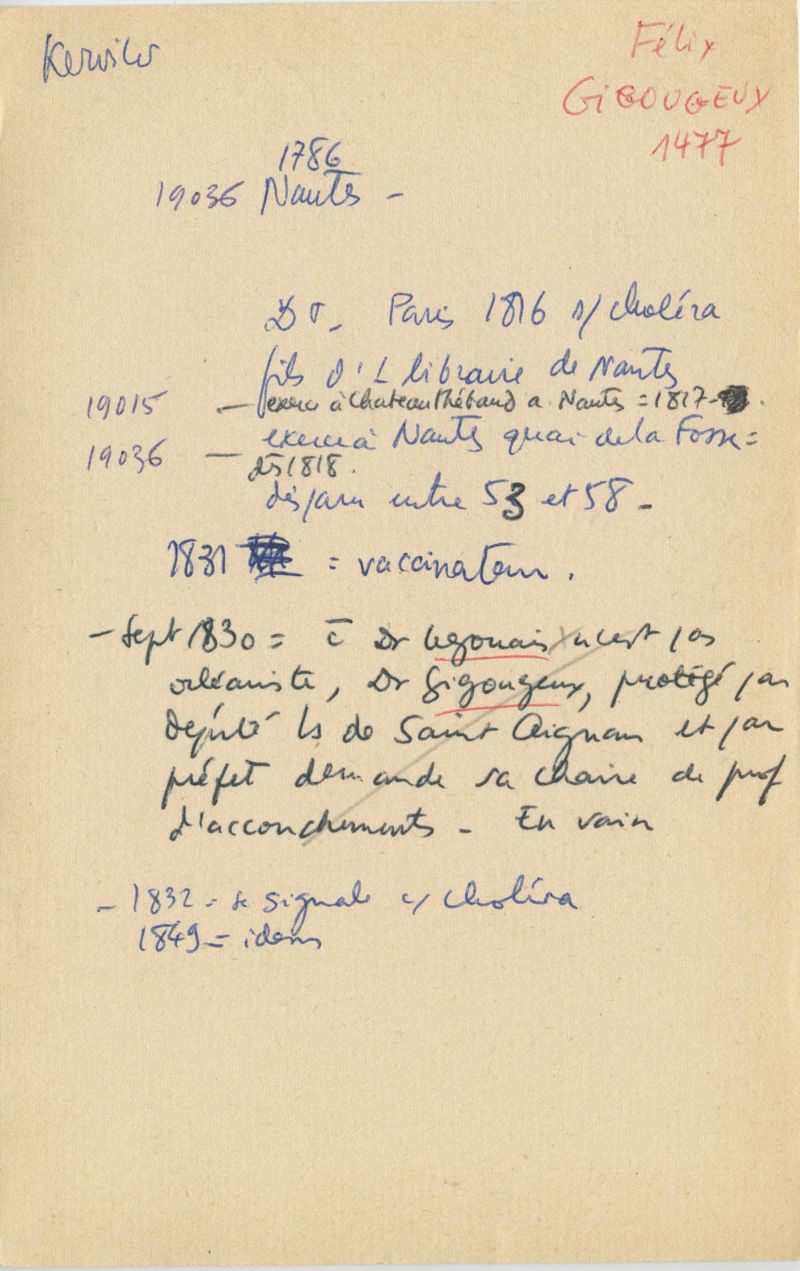 Kerviler
Félix
GIGOUGEUX
1477
1786
19036 Nantes -
Dr - Paris 1816 s/ choléra
fils d'1 libraire de Nantes
19015 - exerce à Chateau Thébaud a Nantes = 1817-
19036 - exerce à Nantes quai de la Fosse =
dès 1818.
disparu entre 53 et 58 -
1831 = vaccinateur.
- Sept 1830 = c̄ Dr Legouais n'est pas
orléaniste, Dr Gigougeux, protégé par
député Ls de Saint Aignan et par
préfet demande sa chaire de prof
d'accouchements - En vain
- 1832 = se signale c/ choléra
1849 = idem